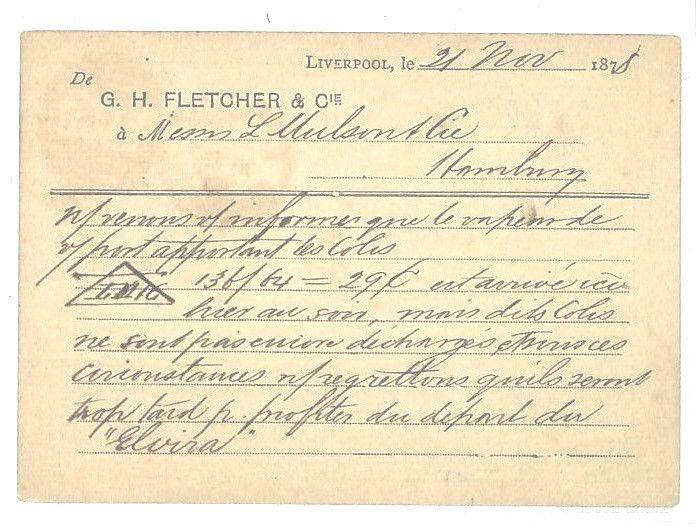 LIVERPOOL, le 21 Nov 1878
De
G. H. FLETCHER & CIE
à Messrs L Mulsont & Cie
Hamburg
n/ venons v/ informer que le vapeur de
v/ port apportant les Colis
136/64 = 29 C est arrivé ici
hier au soir, mais dits Colis
ne sont pas encore déchargés, & sous ces
circonstances n/ regrettons qu'ils seront
trop tard p. profiter du départ du
"Elvira"